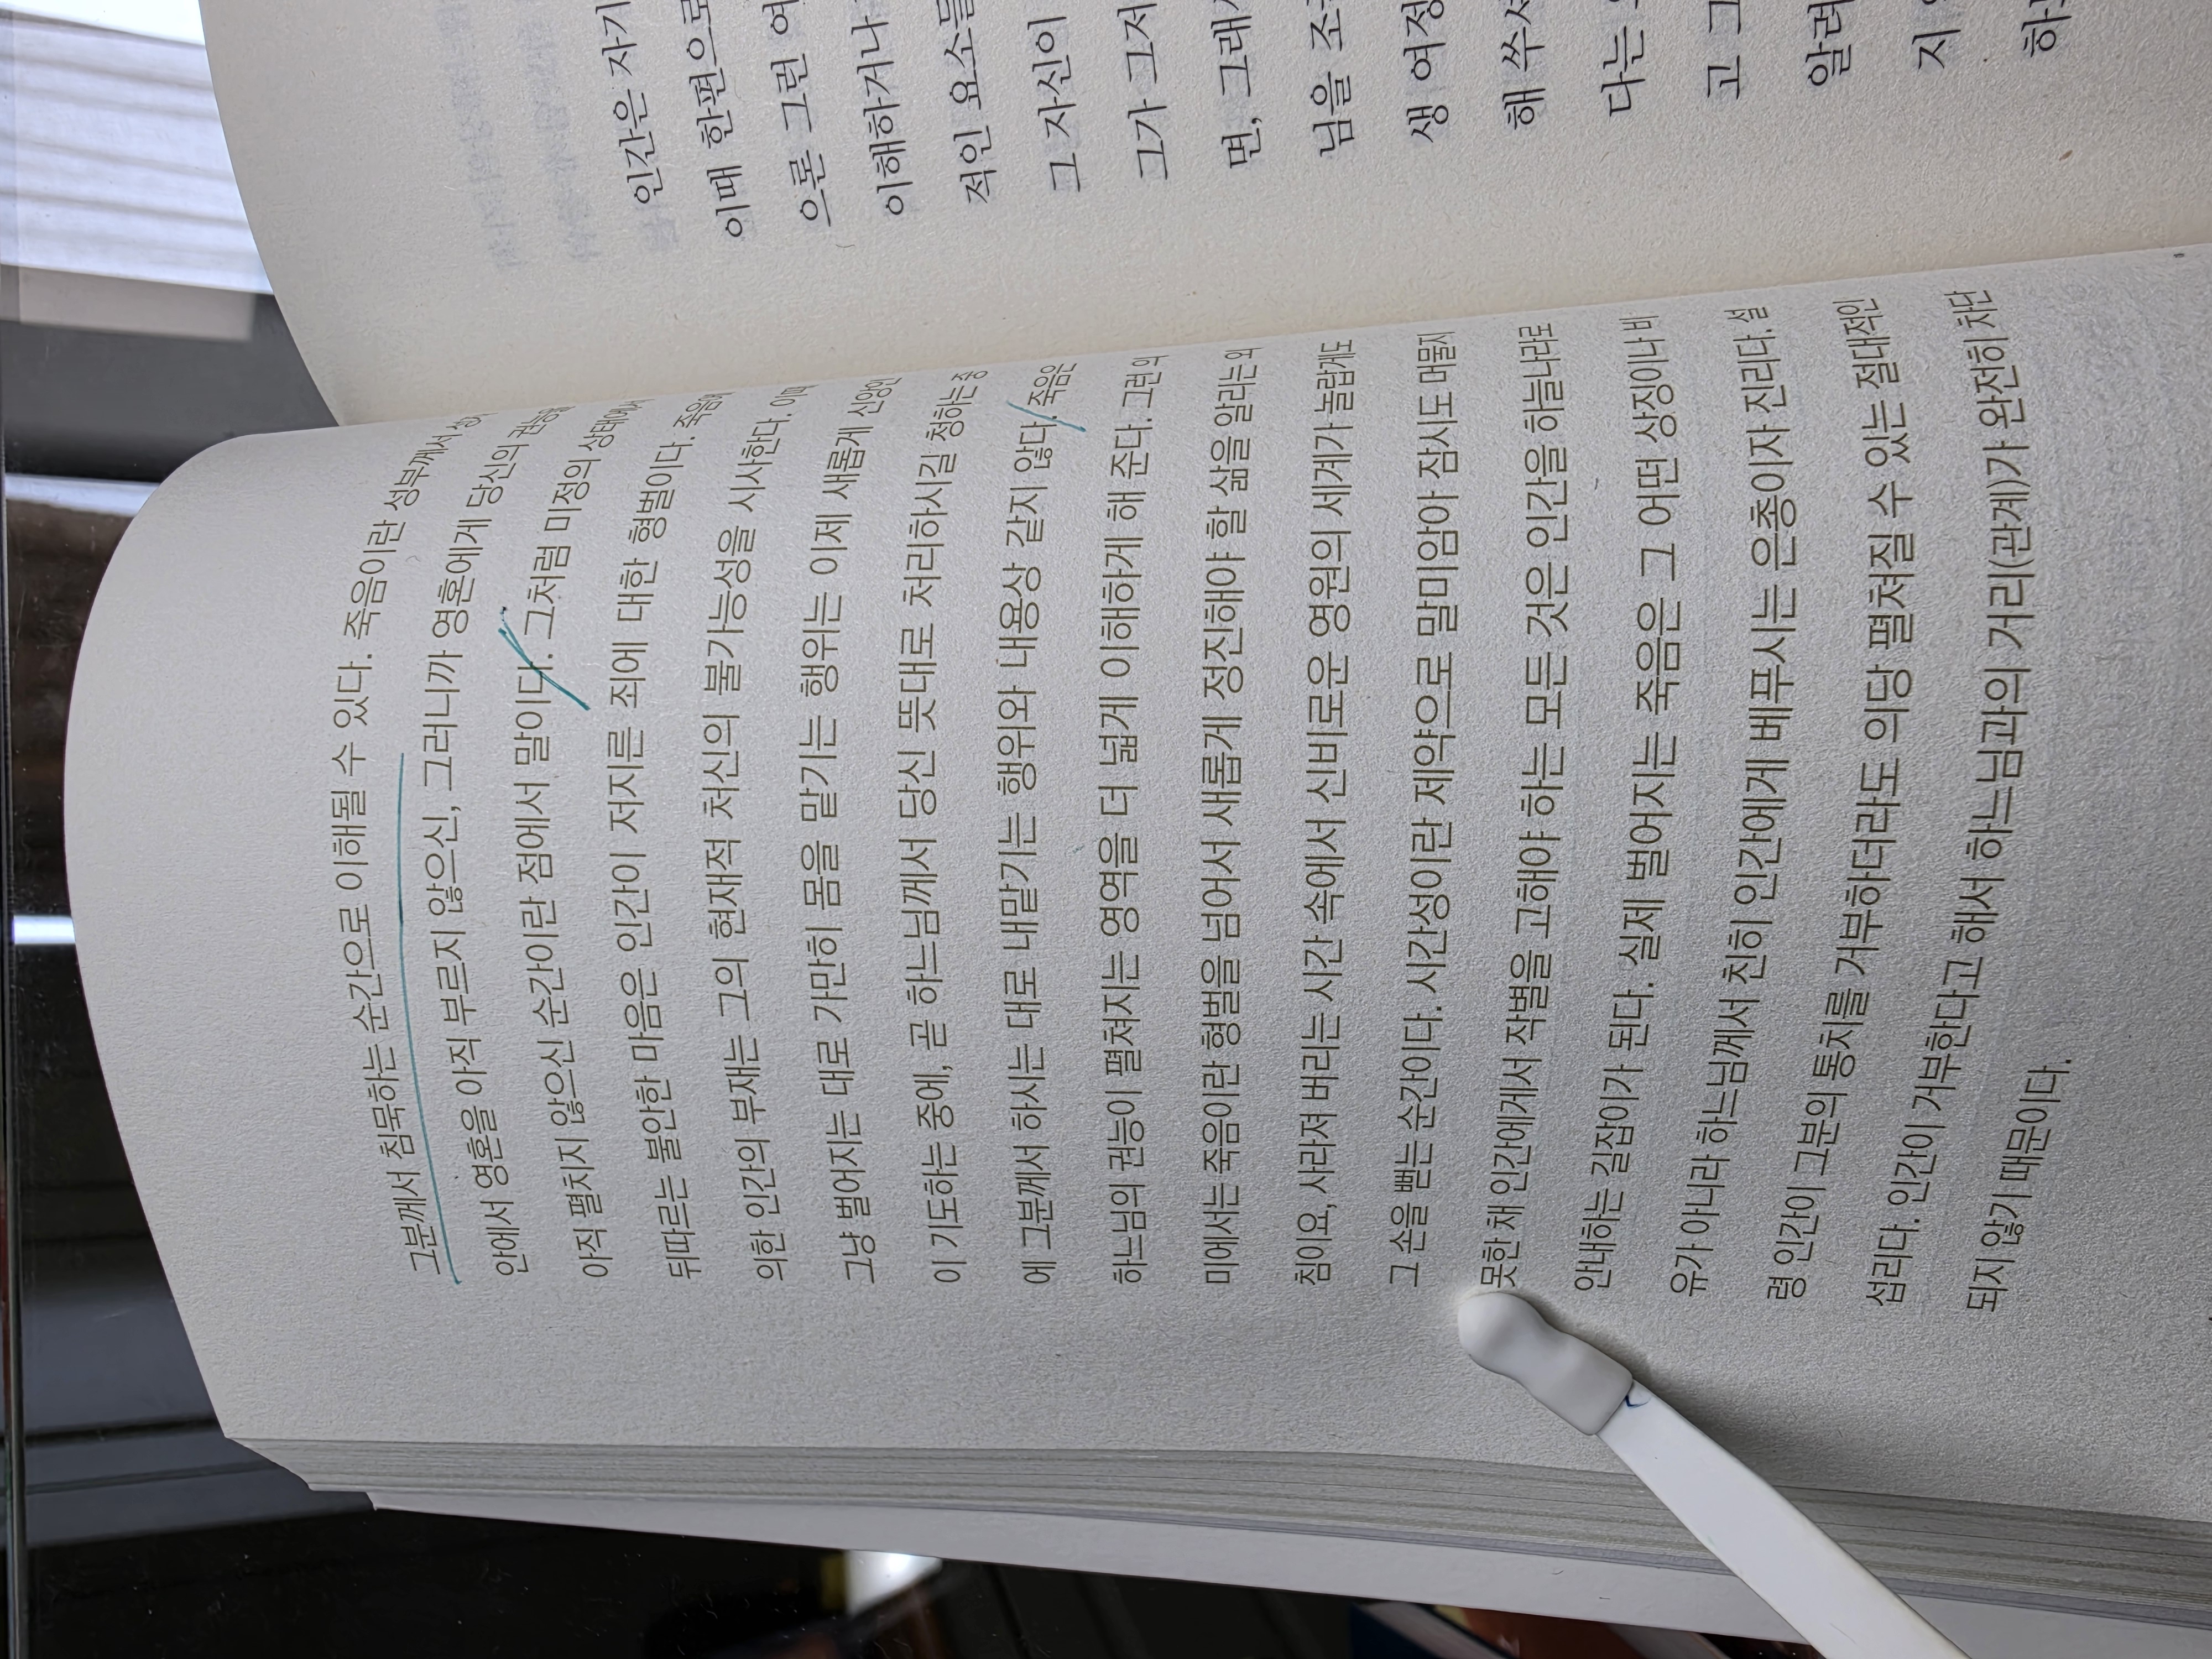 그분께서 침묵하는 순간으로 이해될 수 있다. 죽음이란 성부께서
안에서 영혼을 아직 부르지 않으신, 그러니까 영혼에게 당신의 권능을
아직 펼치지 않으신 순간이란 점에서 말이다. 그처럼 미정의 상태에서
뒤따르는 불안한 마음은 인간이 저지른 죄에 대한 형벌이다. 죽음에
의한 인간의 부재는 그의 현재적 처신의 불가능성을 시사한다. 이때
그냥 벌어지는 대로 가만히 몸을 맡기는 행위는 이제 새롭게 신앙인
이 기도하는 중에, 곧 하느님께서 당신 뜻대로 처리하시길 청하는 중
에 그분께서 하시는 대로 내맡기는 행위와 내용상 같지 않다. 죽음은
하느님의 권능이 펼쳐지는 영역을 더 넓게 이해하게 해 준다. 그런 의
미에서는 죽음이란 형벌을 넘어서 새롭게 정진해야 할 삶을 알리는 외
침이요, 사라져 버리는 시간 속에서 신비로운 영원의 세계가 놀랍게도
그 손을 뻗는 순간이다. 시간성이란 제약으로 말미암아 잠시도 머물지
못한 채 인간에게서 작별을 고해야 하는 모든 것은 인간을 하늘나라로
안내하는 길잡이가 된다. 실제 벌어지는 죽음은 그 어떤 상징이나 비
유가 아니라 하느님께서 친히 인간에게 베푸시는 은총이자 진리다. 설
령 인간이 그분의 통치를 거부하더라도 의당 펼쳐질 수 있는 절대적인
섭리다. 인간이 거부한다고 해서 하느님과의 거리(관계)가 완전히 차단
되지 않기 때문이다.
인간은 자기
이때 한편으로
으론 그런 여
이해하거나
적인 요소들
그 자신이
그가 그저
면, 그래
님을 조
생 여정
해 쓰
다는
고 그
알려
지
하